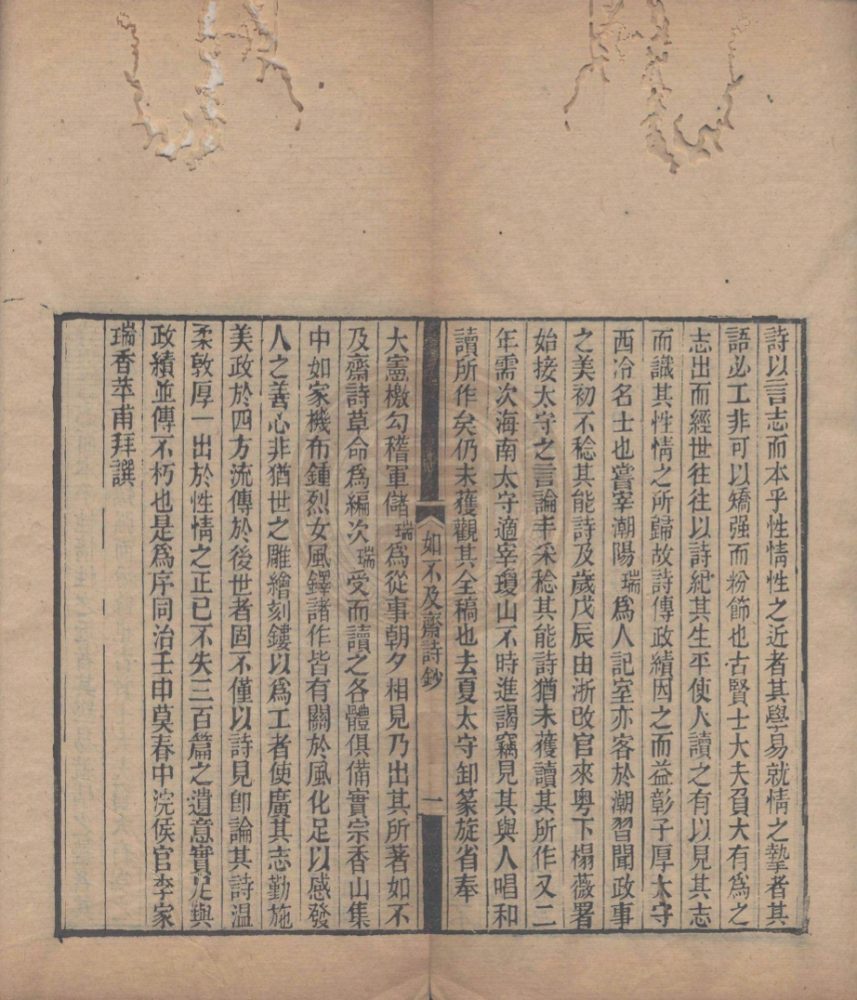 詩以言志而本乎性情性之近者其學易就情之摯者其
語必工非可以矯强而粉飾也古賢士大夫負大有爲之
志出而經世往往以詩紀其生平使人讀之有以見其志
而識其性情之所歸故詩傳政績因之而益彰子厚太守
西泠名士也嘗宰潮陽瑞爲人記室亦客於潮習聞政事
之美初不稔其能詩及歲戊辰由浙改官來粤下榻薇署
始接太守之言論丰采稔其能詩猶未獲讀其所作又二
年需次海南太守適宰瓊山不時進謁竊見其與人唱和
讀所作矣仍未獲觀其全稿也去夏太守卸篆旋省奉
如不及齋詩鈔
一
大憲檄勾稽軍儲瑞爲從事朝夕相見乃出其所著如不
及齋詩草命爲編次瑞受而讀之各體俱備實宗香山集
中如家機布鍾烈女風鐸諸作皆有關於風化足以感發
人之善心非猶世之雕繪刻鏤以爲工者使廣其志勤施
美政於四方流傳於後世者固不僅以詩見卽論其詩溫
柔敦厚一出於性情之正已不失三百篇之遺意實足與
政績並傳不朽也是爲序同治壬申莫春中浣侯官李家
瑞香苹甫拜譔